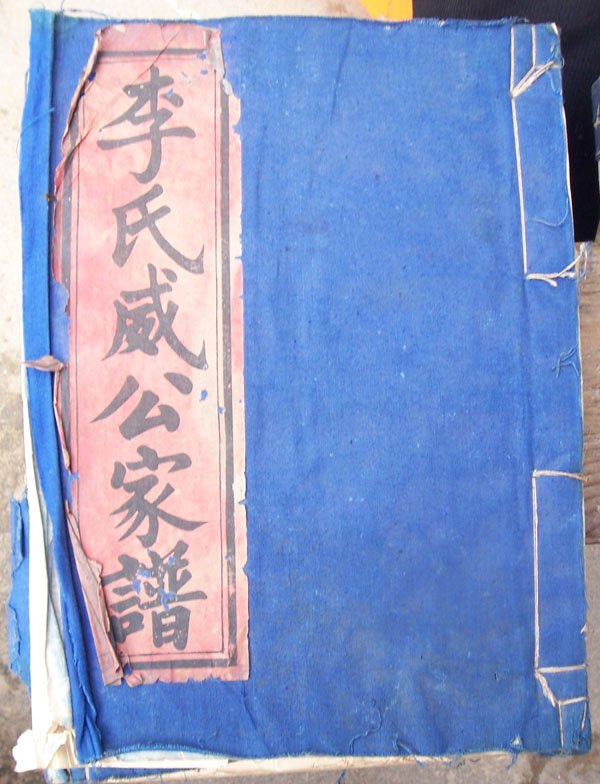 李氏威公家譜